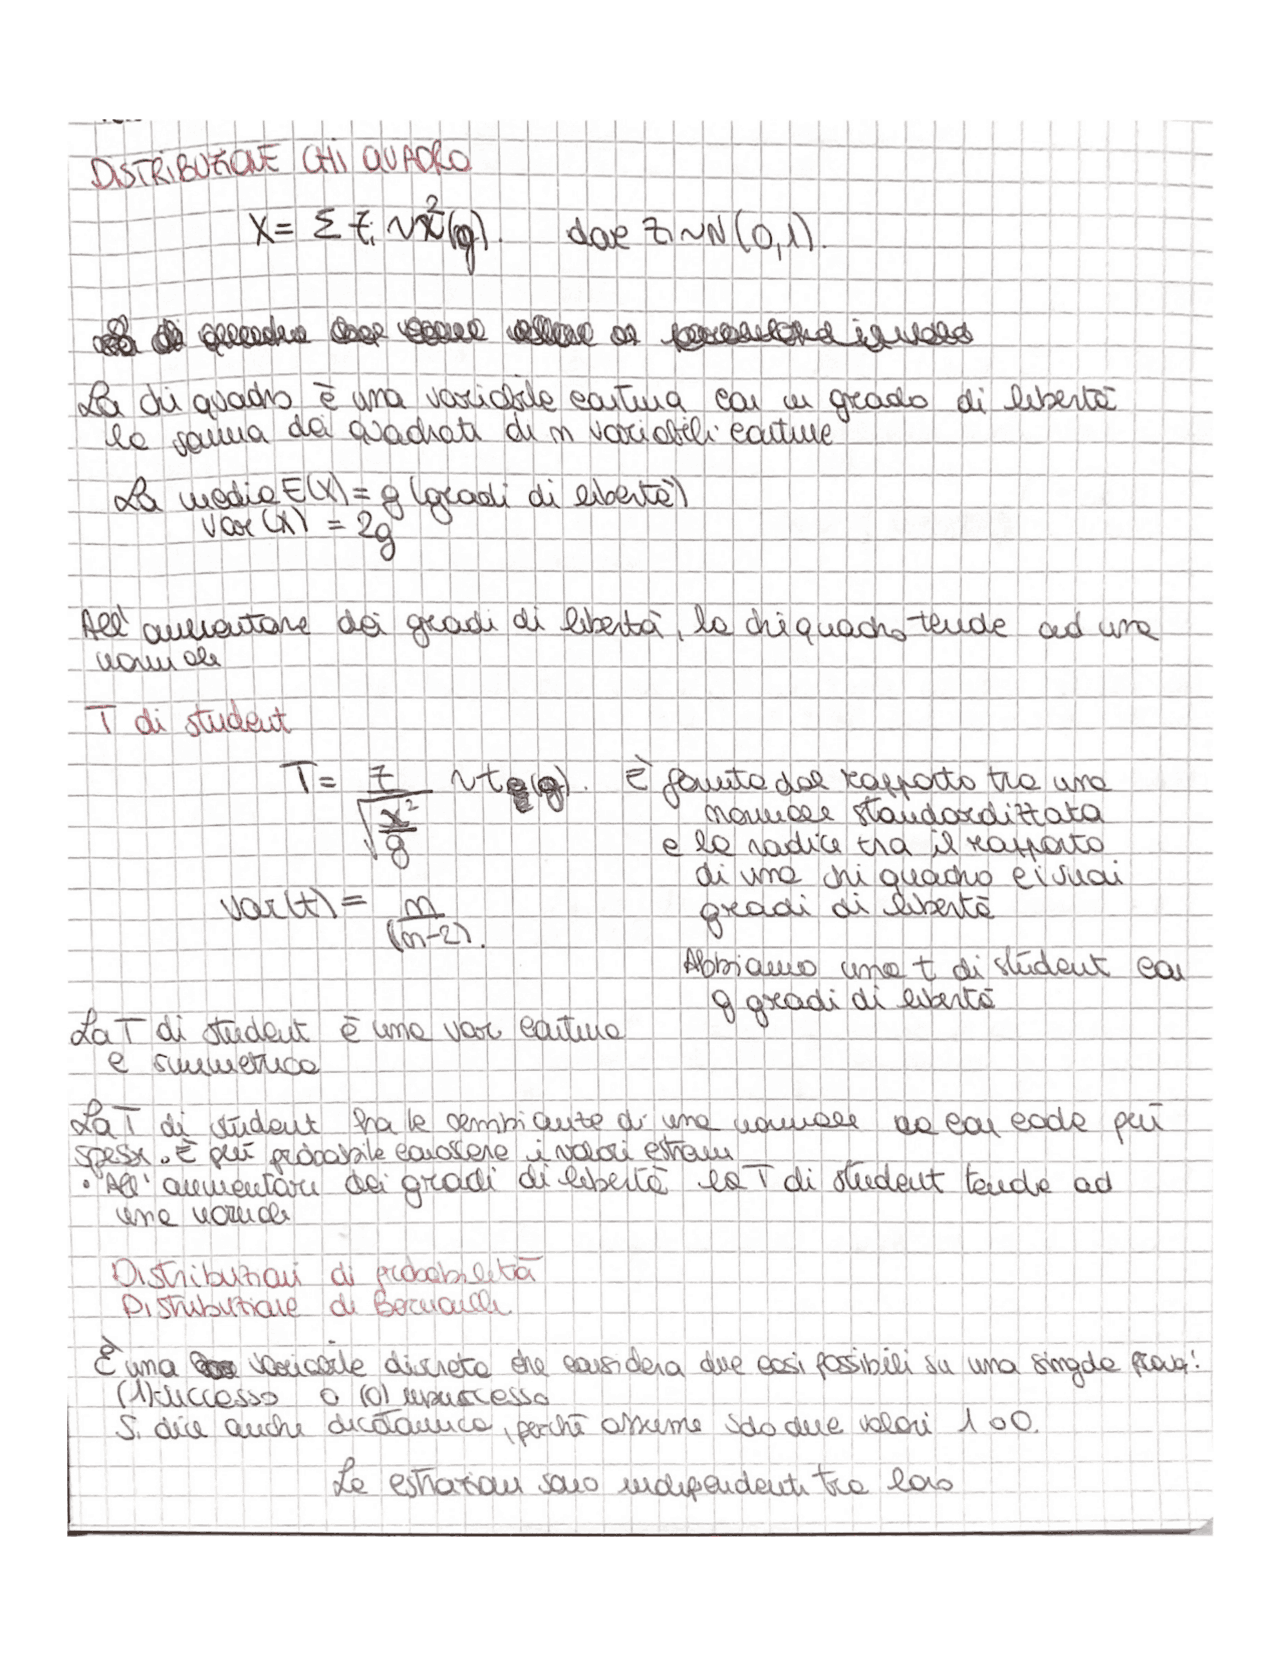 DISTRIBUZIONE CHI QUADRO
X = Σ Zi ~ χ²(g). dove Zi ~ N(0,1).
La chi quadro è una variabile continua con un grado di libertà
la somma dei quadrati di n variabili continue
La media E(X) = g (gradi di libertà)
Var(X) = 2g
All'aumentare dei gradi di libertà, la chi quadro tende ad una
normale
T di student
T = Z / √(χ²/g) ~ t(g). È fornita dal rapporto tra una
normale standardizzata
e la radice tra il rapporto
di una chi quadro e i suoi
gradi di libertà
Var(t) = n/(n-2).
Abbiamo una t di student con
g gradi di libertà
La T di student è una var continua
e simmetrica
La T di student ha le sembianze di una normale con code più
spesse. È più probabile conoscere i valori estremi
• All'aumentare dei gradi di libertà la T di student tende ad
una normale
Distribuzioni di probabilità
Distribuzione di Bernoulli
È una variabile discreta che considera due casi possibili su una singola prova:
(1) successo o (0) insuccesso
Si dice anche dicotomica, perché assume solo due valori 1 o 0.
Le estrazioni sono indipendenti tra loro